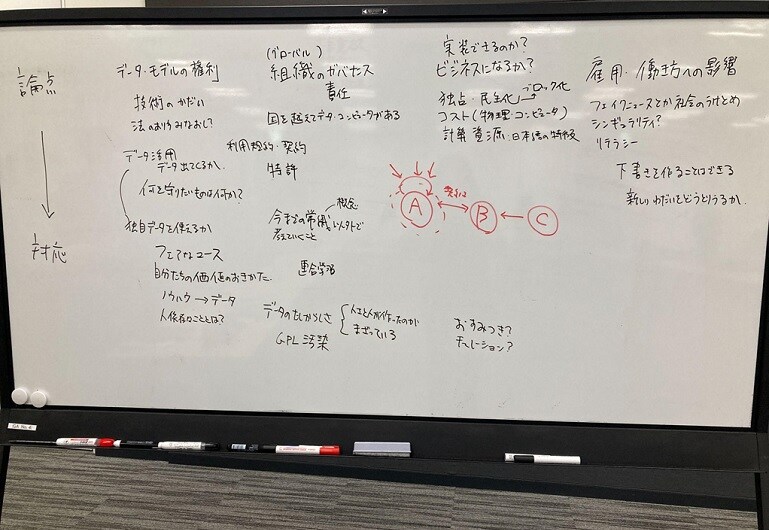 論点
対応
データ・モデルの権利
技術のかだい
法のおりあみなおし?
データ活用
データ出てくるか
何を守りたいものは何か?
独自データを使えるか
フェアなユース
自分たちの価値のおきかた
ノウハウ → データ
人依存なこととは?
(グローバル)
組織のガバナンス
責任
国を越えてデータ・コンピュータがある
利用規約・契約
特許
概念
今までの常用
考えていくこと
連合学習
データのたしからしさ
人工と人が作ったのが
まざっている
GPL汚染
実装できるのか?
ビジネスになるか?
独占・民主化 → ブロック化
コスト(物理・コンピュータ)
計算資源・日本語の特殊
A
B
C
おすみつき?
キュレーション?
雇用・働き方への影響
フェイクニュースとか社会のうけとめ
シンギュラリティ?
リテラシー
下書きを作ることはできる
新しいわだいをどうとりうるか
QA No.4